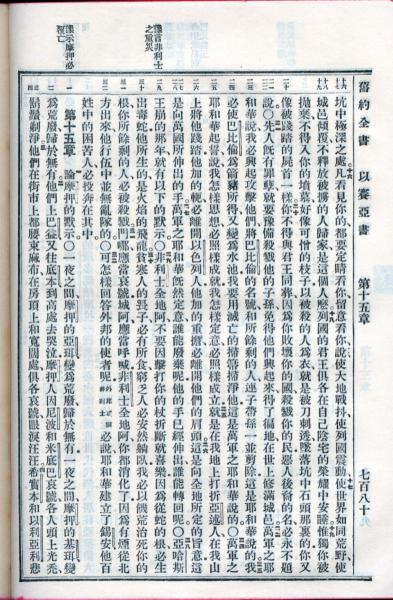 舊約全書 以賽亞書 第十五章 七百八十
坑中極深之處凡看見你的都要定睛看你留意看你說使大地戰抖使列國震動使世界如同荒野使
城邑傾覆不釋放被擄的人歸家是這個人麼列國的君王俱各在自己陰宅的榮耀中安睡惟獨你被
拋棄不得入你的墳墓好像可憎的枝子以被殺的人爲衣就是被刀刺透墜落坑中石頭那裏的你又
像被踐踏的屍首一樣你不得與君王同葬因爲你敗壞你的國殺戮你的民惡人後裔的名必永不題
說○先人既有罪孽就要預備殺戮他的子孫免得他們興起來得了徧地在世上修滿城邑萬軍之耶
和華說我必興起攻擊他們將巴比倫的名號和所餘剩的人連子帶孫一並剪除這是耶和華說的我
必使巴比倫爲箭豬所得又變爲水池我要用滅亡的掃箒掃淨他這是萬軍之耶和華說的○萬軍之
耶和華起誓說我怎樣思想必照樣成就我怎樣定意必照樣成立就是在我地上打折亞述人在我山
上將他踐踏他加的軛必離開以色列人他加的重擔必離開他們的肩頭這是向全地所定的旨意這
是向萬國所伸出的手萬軍之耶和華既然定意誰能廢棄呢他的手已經伸出誰能轉回呢○亞哈斯
王崩的那年就有以下的默示○非利士全地阿不要因擊打你的杖折斷就喜樂因爲從蛇的根必生
出毒蛇他所生的是火焰的飛龍貧寒人的長子必有所食窮乏人必安然躺臥我必以饑荒治死你的
根你所餘剩的人必被殺戮門哪應當哀號城阿應當呼喊非利士全地阿你都消化了因爲有煙從北
方出來他行伍中並無亂隊的○可怎樣回答外邦的使者呢必說耶和華建立了錫安他百
姓中的困苦人必投奔在其中
第十五章 論摩押的默示○一夜之間摩押的亞珥變爲荒廢歸於無有一夜之間摩押的基珥變
爲荒廢歸於無有他們上巴益又往底本到高處去哭泣摩押人因尼波和米底巴哀號各人頭上光禿
鬍鬚剃淨他們在街市上都腰束麻布在房頂上和寬闊處俱各哀號眼淚汪汪希實本和以利亞利悲
言非利士
之重災
示摩押必
覆亡